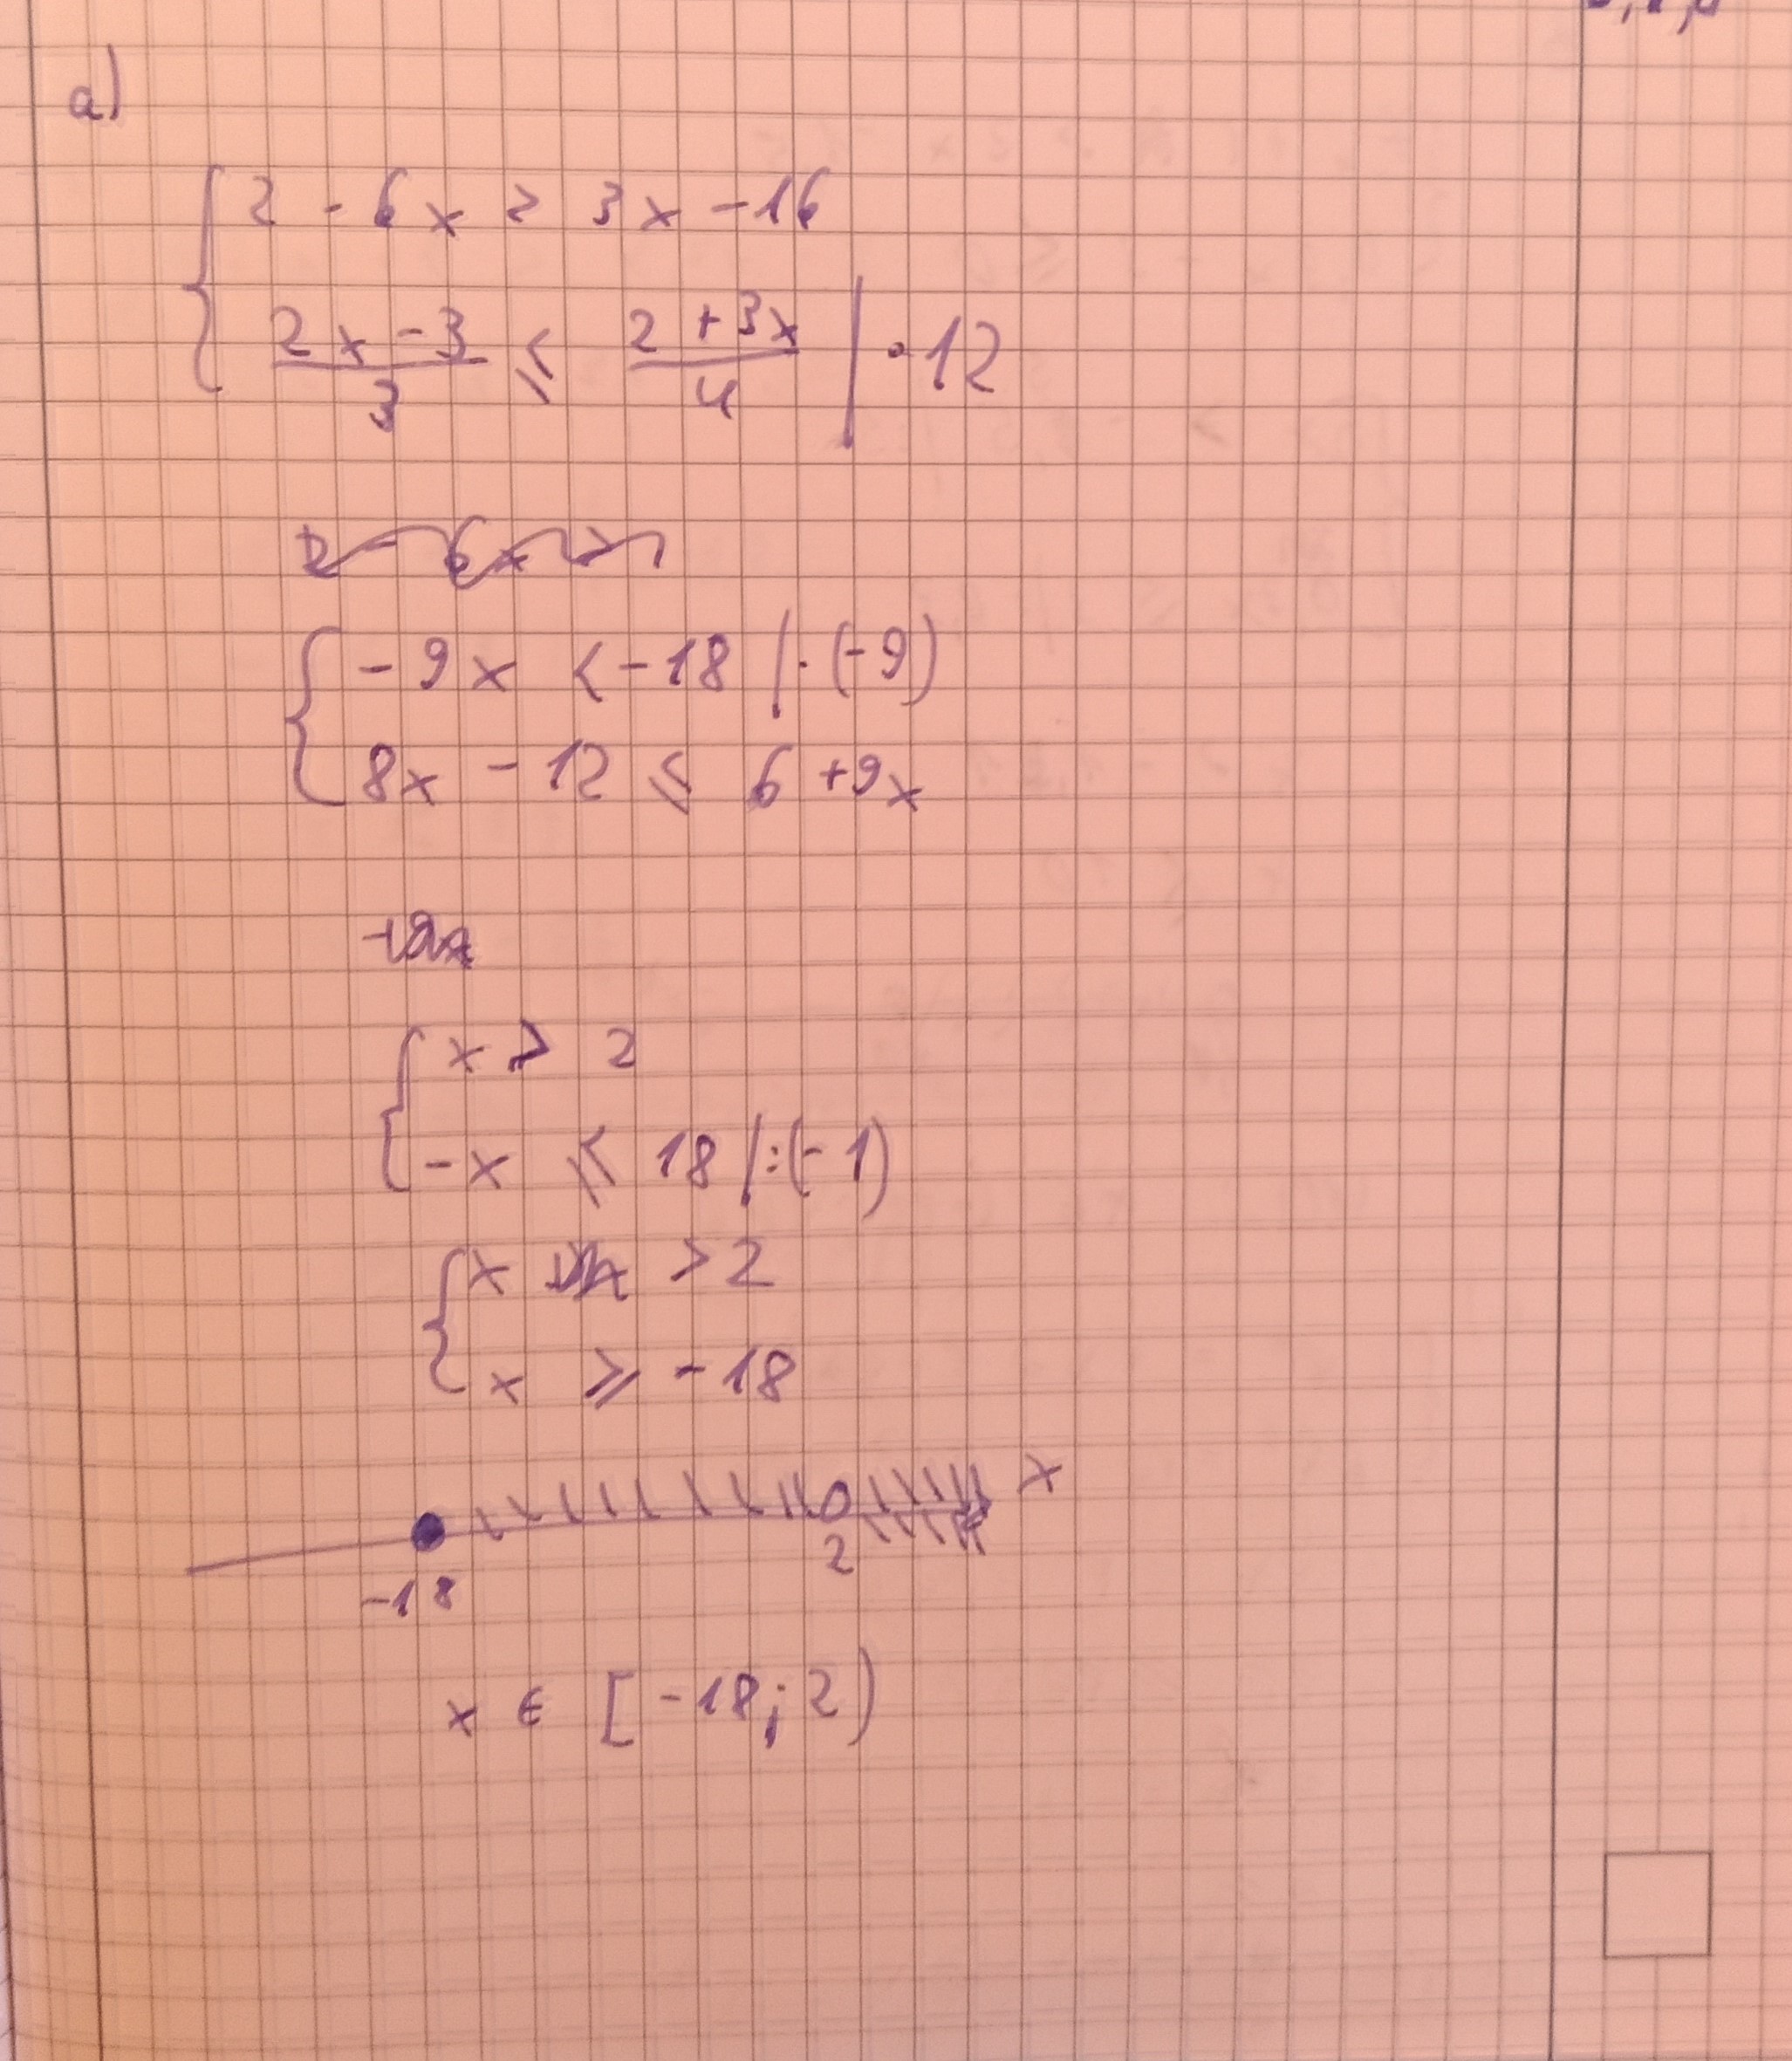 a)
2 - 6x > 3x - 16
(2x - 3)/3 ⩽ (2 + 3x)/4 | · 12
- 9x < - 18 | · (- 9)
8x - 12 ⩽ 6 + 9x
x > 2
- x ⩽ 18 | : (- 1)
x > 2
x ⩾ - 18
x
-18 2
x ∈ [ - 18; 2)